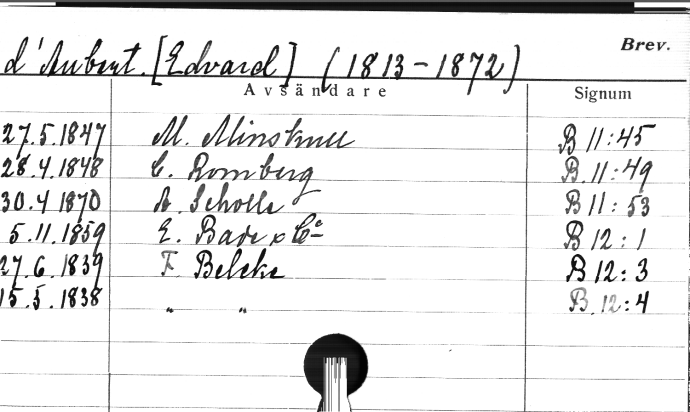 d'Aubert. [Edvard] (1813-1872)
Brev.
Avsändare Signum
27.5.1847 M. Minskull B 11:45
28.4.1848 C. Romberg B.11:49
30.4 1870 A. Scholle B 11:53
5.11.1859 E. Bade & Cº B 12:1
27.6.1839 F. Belcke B 12:3
15.5.1838 " " B.12:4